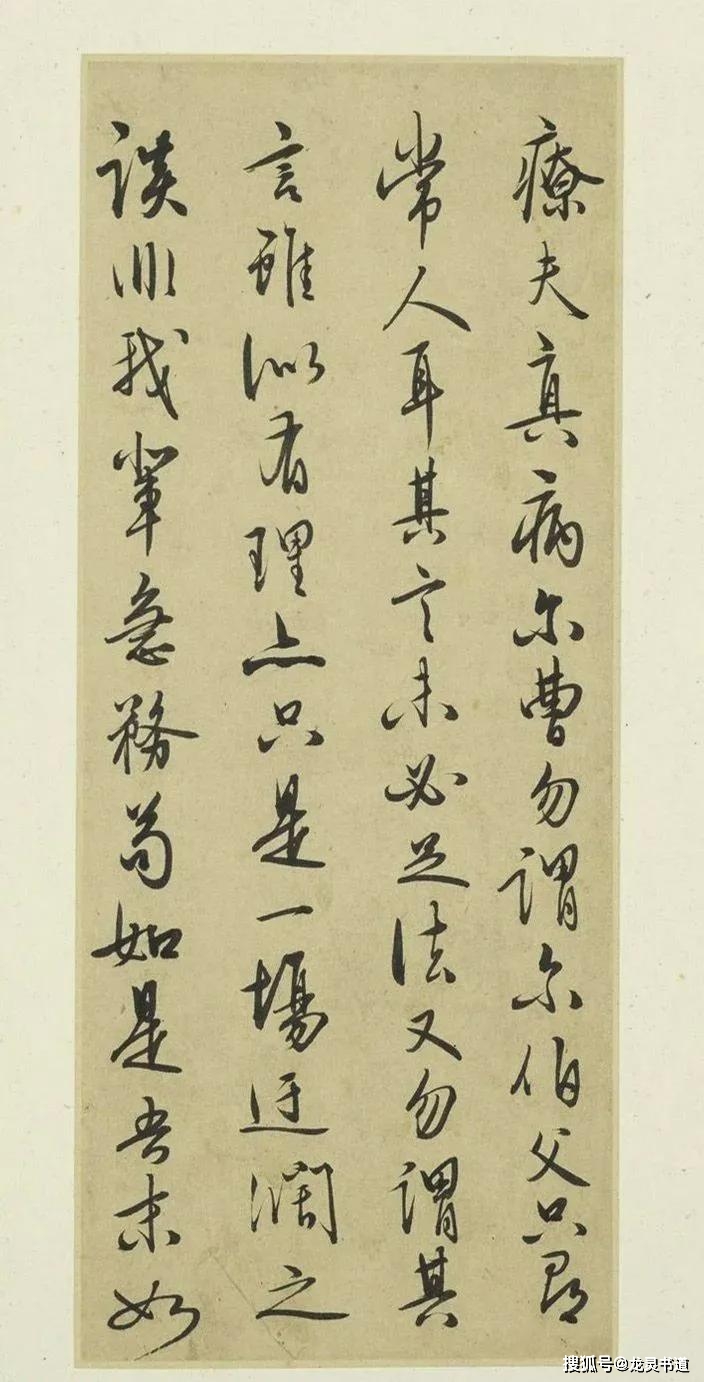 療夫真病尔曹勿謂尔伯父只尋
常人耳其言未必足法又勿謂其
言雖似有理亦只是一場迂闊之
談非我輩急務苟如是吾末如
搜狐号@龙灵书道